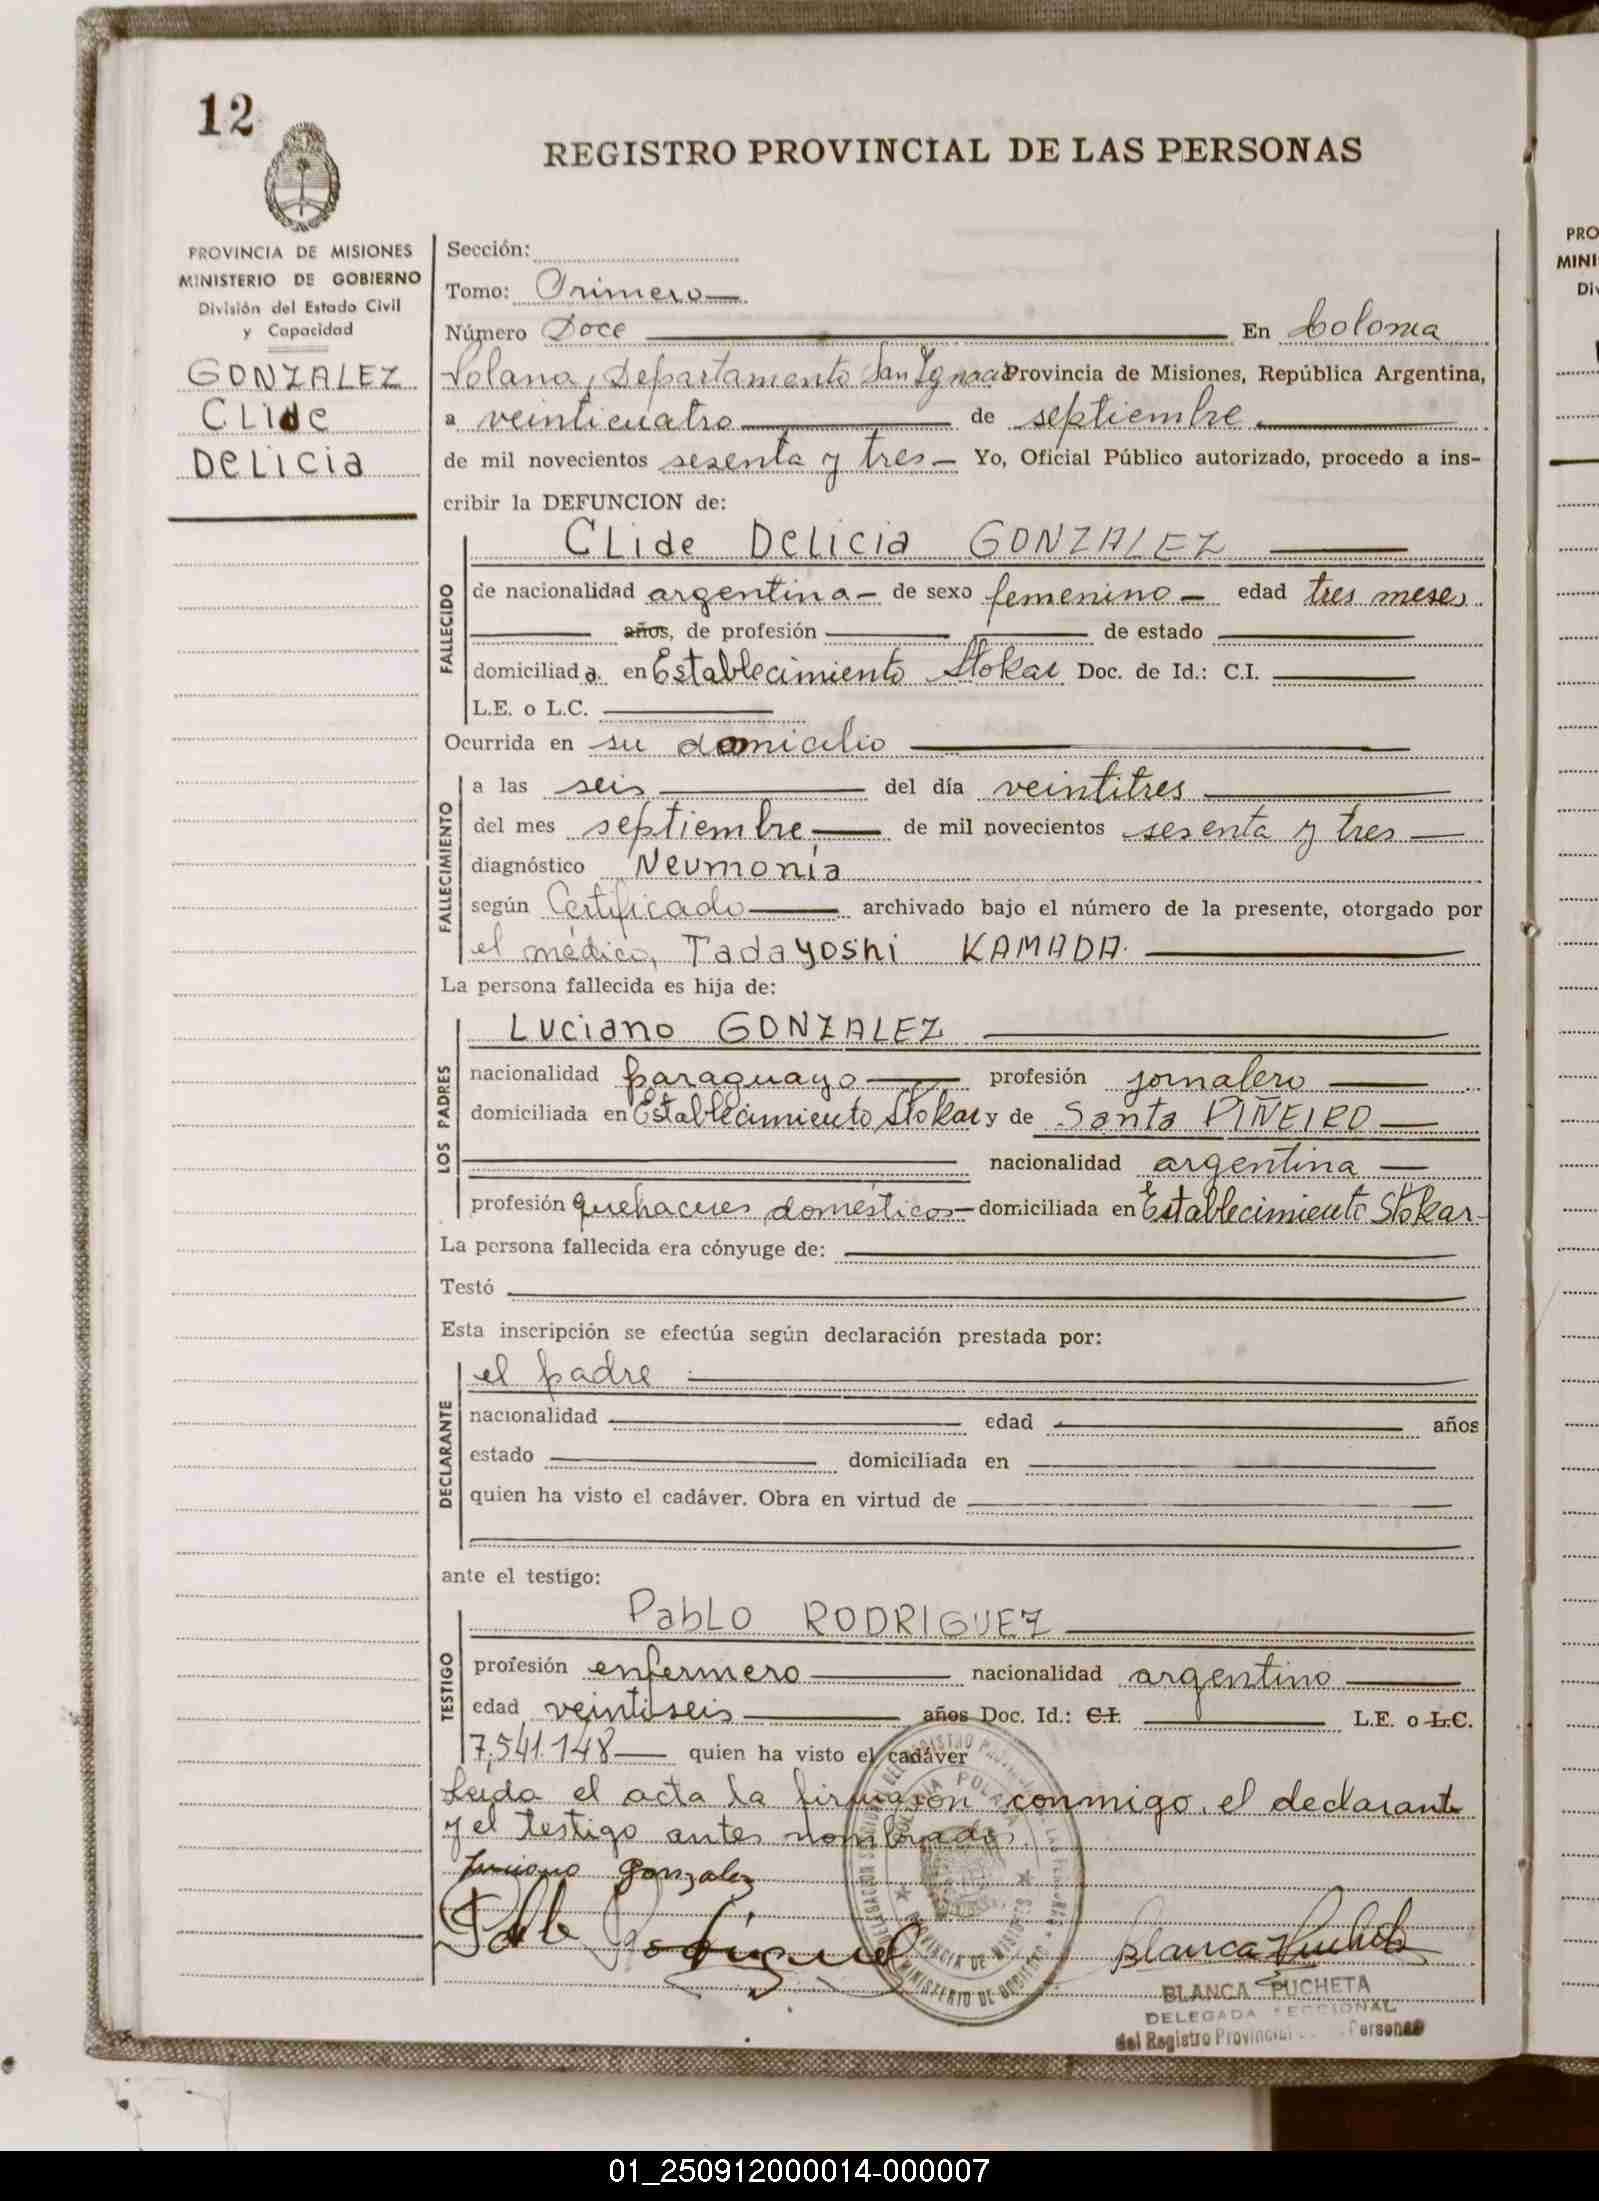 12
REGISTRO PROVINCIAL DE LAS PERSONAS
PROVINCIA DE MISIONES
MINISTERIO DE GOBIERNO
División del Estado Civil
y Capacidad
GONZALEZ
CLide
DeLicia
Sección:
Tomo: Primero
Número Doce En Colonia
Polana, Departamento San Ignacio Provincia de Misiones, República Argentina,
a veinticuatro de septiembre
de mil novecientos sesenta y tres Yo, Oficial Público autorizado, procedo a ins-
cribir la DEFUNCION de:
CLide DeLicia GONZALEZ
FALLECIDO
de nacionalidad argentina de sexo femenino edad tres meses
años, de profesión de estado
domiciliada en Establecimiento Stokar Doc. de Id.: C.I.
L.E. o L.C.
Ocurrida en su domicilio
FALLECIMIENTO
a las seis del día veintitres
del mes septiembre de mil novecientos sesenta y tres
diagnóstico Neumonía
según Certificado archivado bajo el número de la presente, otorgado por
el médico, Tadayoshi KAMADA
La persona fallecida es hija de:
LOS PADRES
Luciano GONZALEZ
nacionalidad paraguayo profesión jornalero
domiciliada en Establecimiento Stokar y de Santa PIÑEIRO
nacionalidad argentina
profesión quehaceres domésticos domiciliada en Establecimiento Stokar
La persona fallecida era cónyuge de:
Testó
Esta inscripción se efectúa según declaración prestada por:
DECLARANTE
el padre
nacionalidad edad años
estado domiciliada en
quien ha visto el cadáver. Obra en virtud de
ante el testigo:
TESTIGO
PabLO RODRIGUEZ
profesión enfermero nacionalidad argentino
edad veintiseis años Doc. Id.: C.I. L.E. o L.C.
7,541.148 quien ha visto el cadáver
Leida el acta la firmaron conmigo, el declarante
y el testigo antes nombrados.
Luciano gonzalez
Pablo Rodriguez
Blanca Pucheta
BLANCA PUCHETA
DELEGADA SECCIONAL
del Registro Provincial Personas
COLONIA POLANA
PROVINCIA DE MISIONES
MINISTERIO DE GOBIERNO
PRO
MINI
Div
01_250912000014-000007